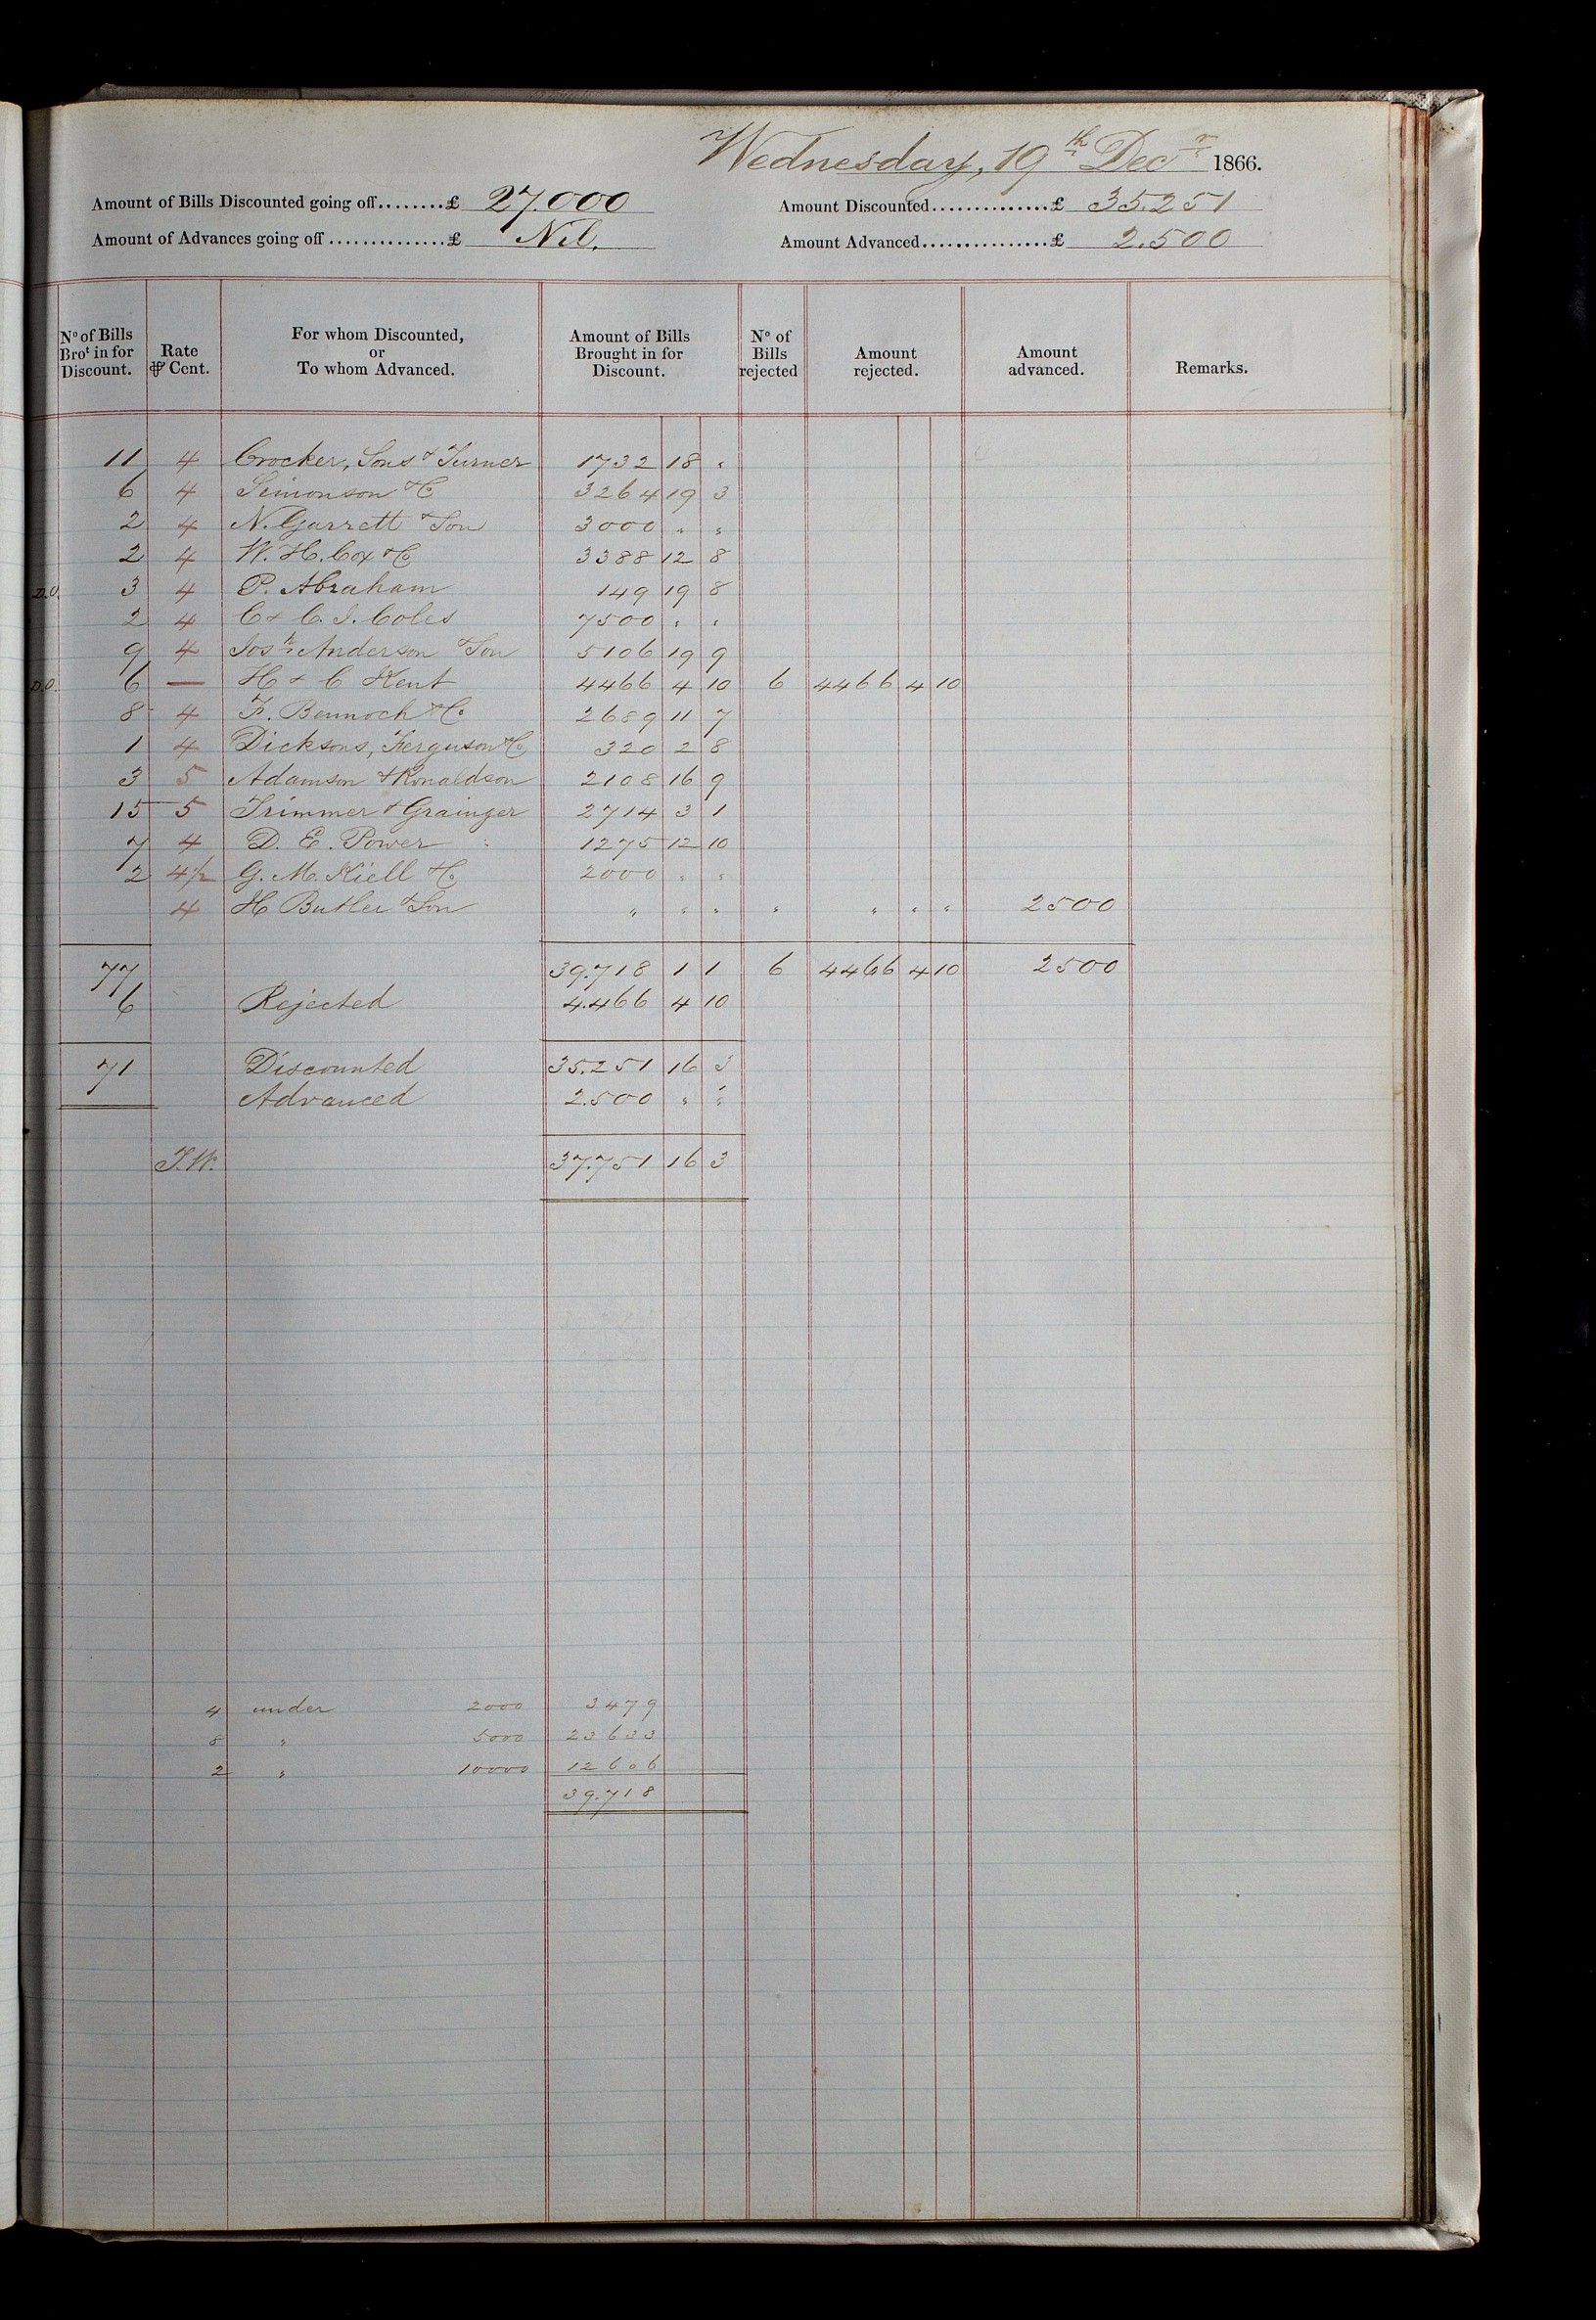 Wednesday, 19th Decr 1866.
Amount of Bills Discounted going off........£ 27.000 Amount Discounted..............£ 35.251
Amount of Advances going off..............£ Nil. Amount Advanced...............£ 2.500
No of Bills Brot in for Discount. Rate ⅌ Cent. For whom Discounted, or To whom Advanced. Amount of Bills Brought in for Discount. No of Bills rejected Amount rejected. Amount advanced. Remarks.
11 4 Crocker, Sons & Turner 1732 18 "
6 4 Simonson & Co 3264 19 3
2 4 N. Garrett & Son 3000 " "
2 4 W. H. Cox & Co 3388 12 8
D.O. 3 4 P. Abraham 149 19 8
2 4 C & C. J. Coles 7500 " "
9 4 Josh Anderson & Son 5106 19 9
D.O. 6 — H & C Kent 4466 4 10 6 4466 4 10
8 4 F. Bennoch & Co 2689 11 7
1 4 Dicksons, Ferguson & Co 320 2 8
3 5 Adamson & Ronaldson 2108 16 9
15 5 Trimmer & Grainger 2714 3 1
7 4 D. E. Power 1275 12 10
2 4½ G. M. Kiell & Co 2000 " "
4 H Butler & Son " " " " " " " 2500
77 39.718 1 1 6 4466 4 10 2500
6 Rejected 4.466 4 10
71 Discounted 35.251 16 3
Advanced 2.500 " "
J.W. 37.751 16 3
4 under 2000 3479
8 " 5000 23633
2 " 10000 12606
39.718